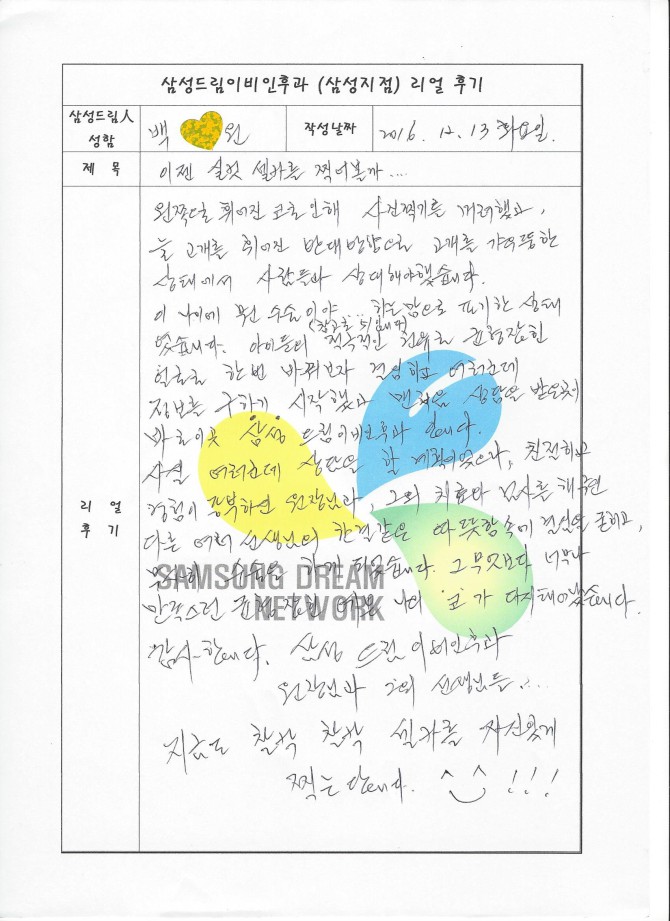 삼성드림이비인후과 (삼성지점) 리얼 후기
삼성드림人
성함
백 원
작성날짜
2016. 12. 13 화요일.
제 목
이젠 실컷 셀카를 찍어볼까....
왼쪽으로 휘어진 코로 인해 사진찍기를 꺼려했고,
늘 고개를 휘어진 반대방향으로 고개를 갸우뚱한
상태에서 사람들과 상대해야했습니다.
이 나이에 무슨 수술이야.. 하는 맘으로 포기한 상태
였습니다. 아이들의 적극적인 권유로 균형잡힌
(참고로 51입니다)
얼굴로 한번 바꿔보자 결심하고 여러군데
정보를 구하기 시작했고 맨처음 상담을 받은곳이
바로 이곳 삼성드림이비인후과 입니다.
사실 여러군데 상담을 할 계획이었으나, 친절하고
경험이 풍부하신 원장님과, 그외 치료와 검사를 해주신
다른 여러 선생님의 한결같은 따뜻함속에 결심을 굳히고,
무사히 수술을 하게 되었습니다. 그 무엇보다 너무나
만족스런 균형잡힌 나의 '코'가 다시태어났습니다.
감사합니다. 삼성드림이비인후과
원장님과 그외 선생님들....
지금도 찰칵 찰칵 셀카를 자신있게
찍는답니다. ^^ !!!
리 얼
후 기
SAMSUNG DREAM
NETWORK